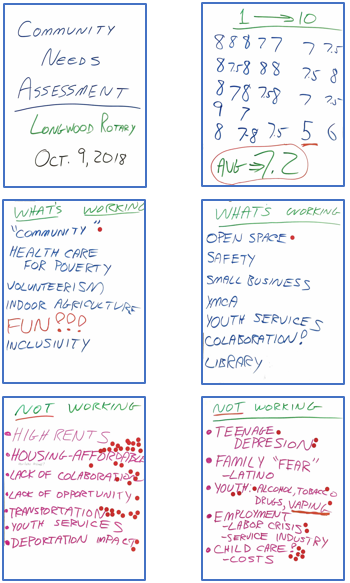 COMMUNITY
NEEDS
ASSESSMENT
LONGWOOD ROTARY
OCT. 9, 2018
1 → 10
8 8 8 7 7 7 7.5
8 7.5 8 8 8 7.5 8
8 7 8 7.5 8 7 7.5
9 7
8 7.8 7.5 5 6
AVG ⇒ 7.2
WHAT'S WORKING
"COMMUNITY"
HEALTH CARE
FOR POVERTY
VOLUNTEERISM
INDOOR AGRICULTURE
FUN!!!
INCLUSIVITY
WHAT'S WORKING
OPEN SPACE
SAFETY
SMALL BUSINESS
YMCA
YOUTH SERVICES
COLABORATION!
LIBRARY
NOT WORKING
• HIGH RENTS
• HOUSING-AFFORDABLE
• LACK OF COLABORATION
• LACK OF OPPORTUNITY
• TRANSPORTATION
• YOUTH SERVICES
• DEPORTATION IMPACT
NOT WORKING
• TEENAGE
DEPRESION
• FAMILY "FEAR"
-LATINO
• YOUTH: ALCOHOL, TOBACCO
DRUGS, VAPING
• EMPLOYMENT
-LABOR CRISIS
-SERVICE INDUSTRY
• CHILD CARE?
-COSTS